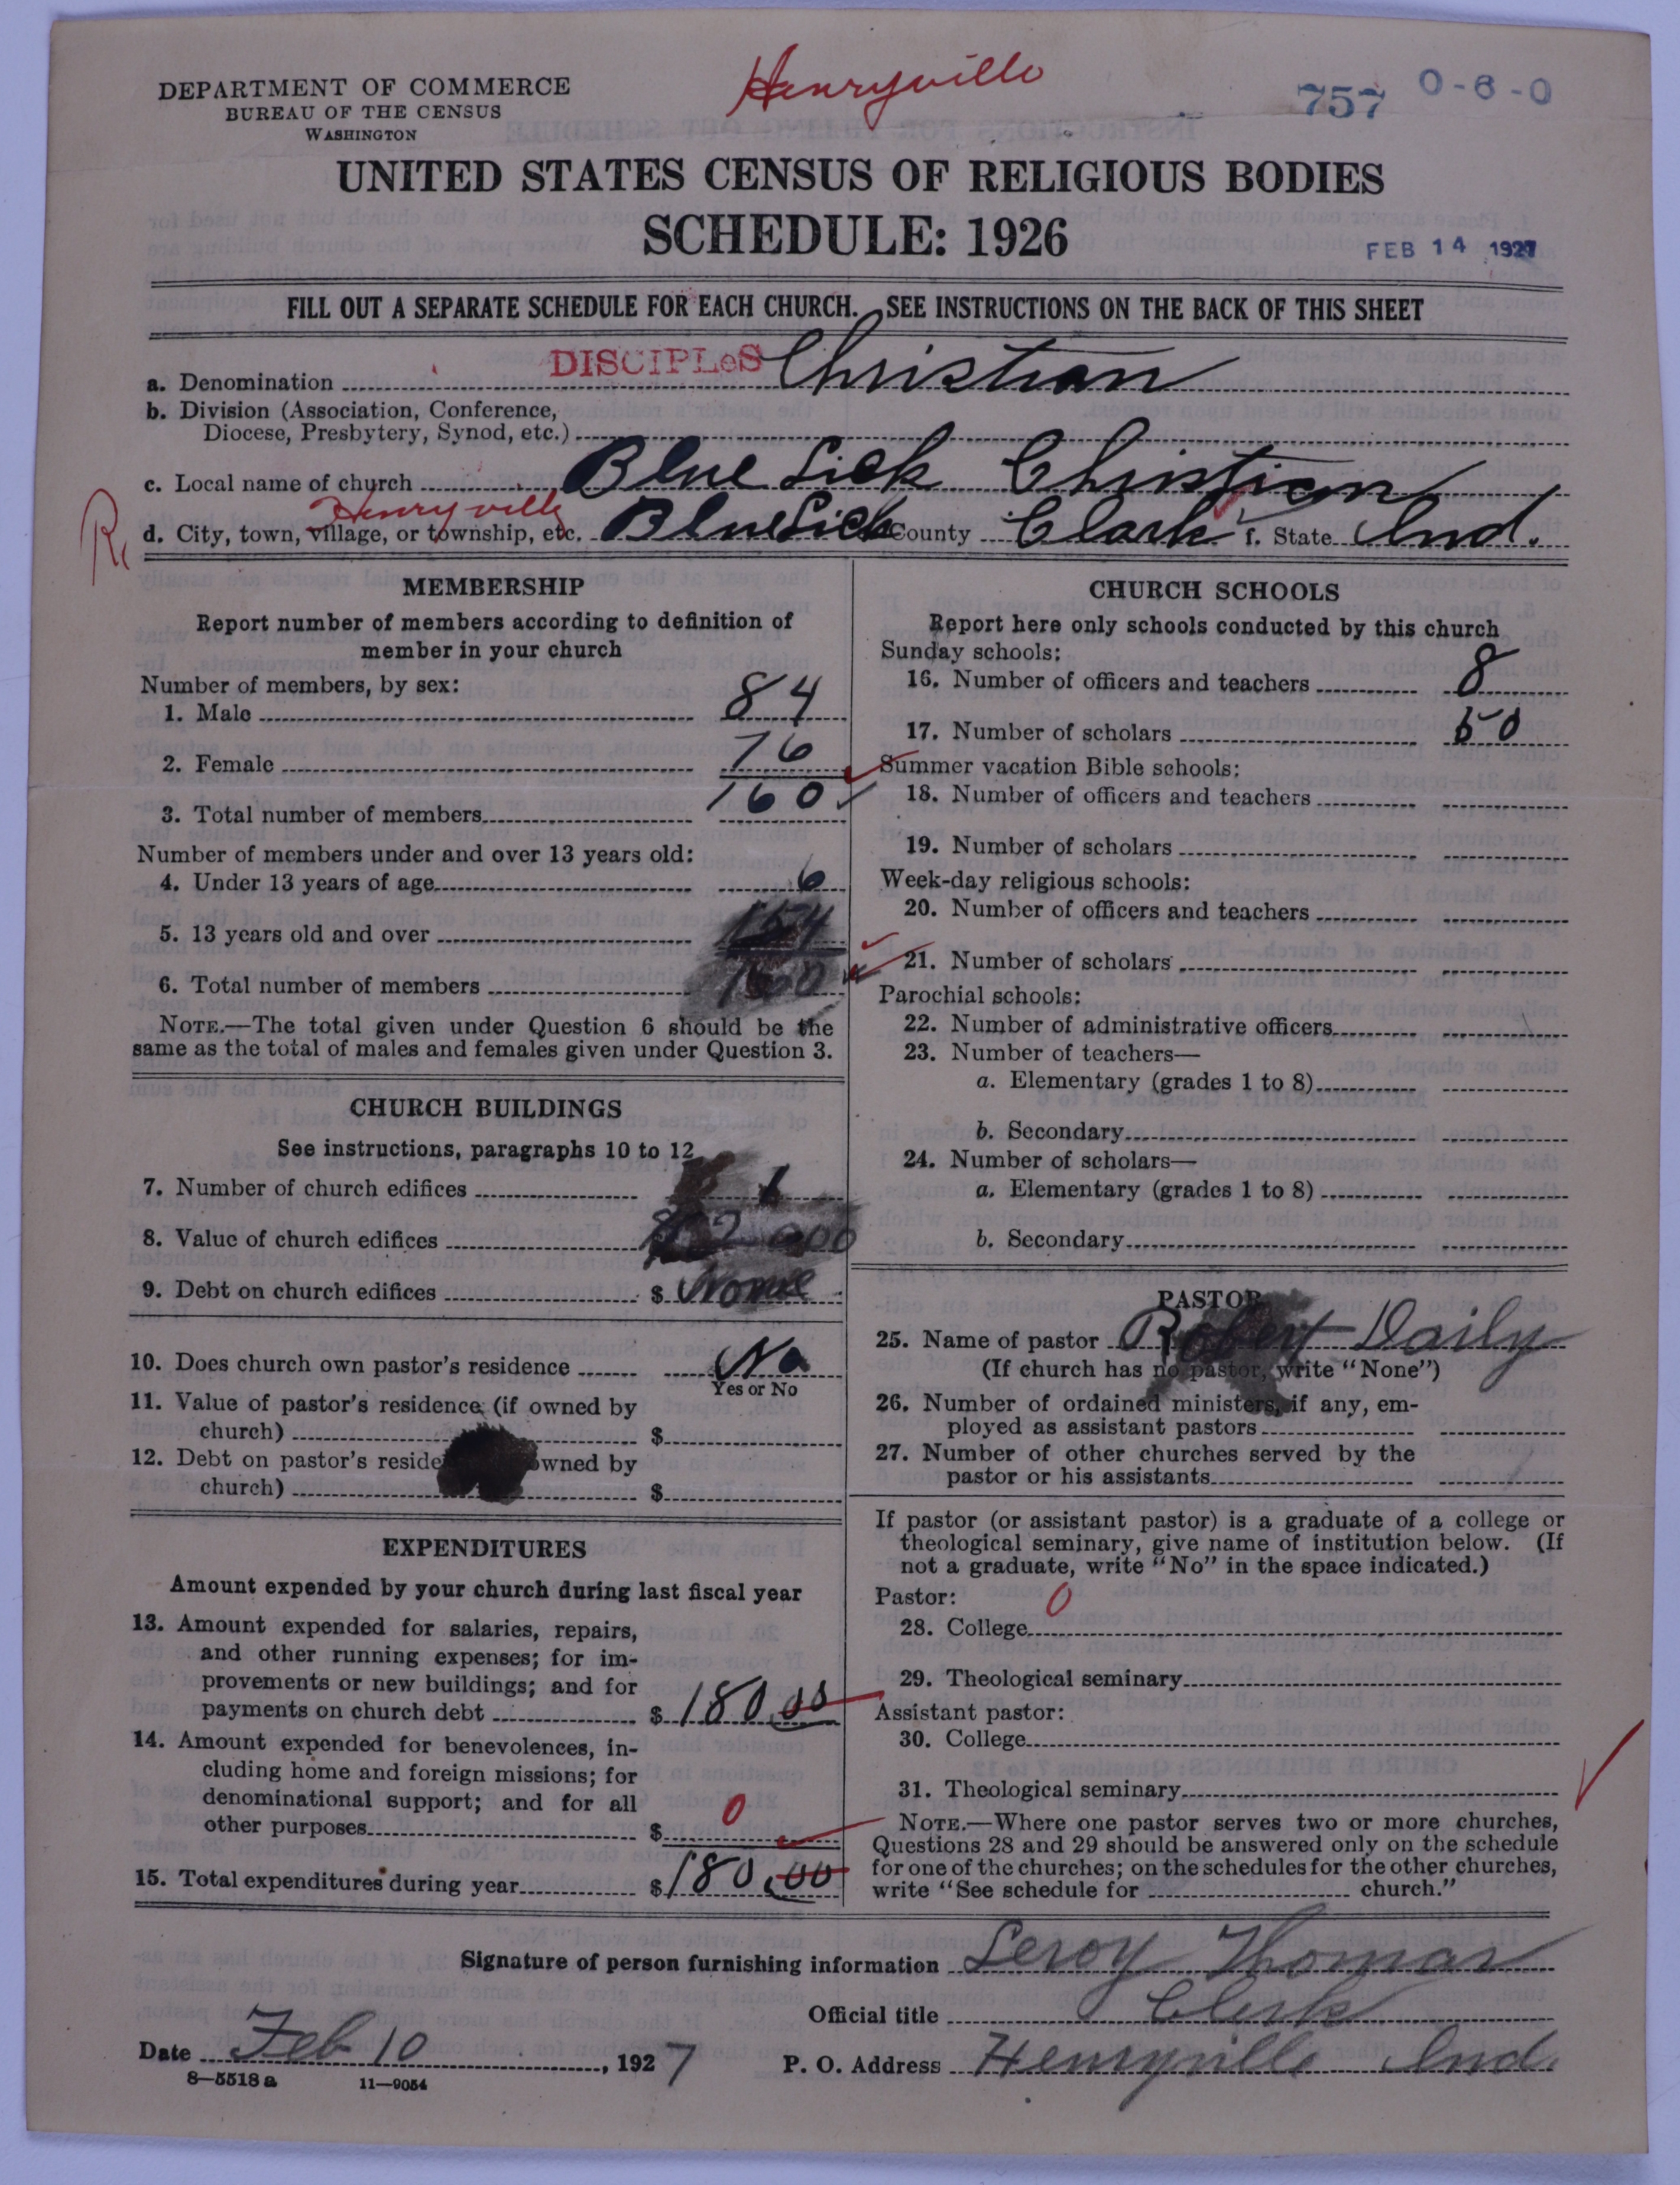 Henryville
757 0-6-0
DEPARTMENT OF COMMERCE
BUREAU OF THE CENSUS
WASHINGTON
UNITED STATES CENSUS OF RELIGIOUS BODIES
SCHEDULE: 1926
FEB 14 1927
FILL OUT A SEPARATE SCHEDULE FOR EACH CHURCH. SEE INSTRUCTIONS ON THE BACK OF THIS SHEET
a. Denomination DISCIPLeS Christian
b. Division (Association, Conference,
Diocese, Presbytery, Synod, etc.)
c. Local name of church Blue Lick Christian
Henryville
R. d. City, town, village, or township, etc. Blue Lick County Clark f. State Ind.
MEMBERSHIP
Report number of members according to definition of
member in your church
Number of members, by sex:
1. Male 84
2. Female 76
3. Total number of members 160
Number of members under and over 13 years old:
4. Under 13 years of age 6
5. 13 years old and over 154
6. Total number of members 160
NOTE.—The total given under Question 6 should be the
same as the total of males and females given under Question 3.
CHURCH BUILDINGS
See instructions, paragraphs 10 to 12
7. Number of church edifices 1
8. Value of church edifices
9. Debt on church edifices $ None
10. Does church own pastor's residence No
Yes or No
11. Value of pastor's residence (if owned by
church) $
12. Debt on pastor's owned by
church) $
EXPENDITURES
Amount expended by your church during last fiscal year
13. Amount expended for salaries, repairs,
and other running expenses; for im-
provements or new buildings; and for
payments on church debt $ 180.00
14. Amount expended for benevolences, in-
cluding home and foreign missions; for
denominational support; and for all
other purposes $ 0
15. Total expenditures during year $ 180.00
CHURCH SCHOOLS
Report here only schools conducted by this church
Sunday schools:
16. Number of officers and teachers 8
17. Number of scholars 50
Summer vacation Bible schools:
18. Number of officers and teachers
19. Number of scholars
Week-day religious schools:
20. Number of officers and teachers
21. Number of scholars
Parochial schools:
22. Number of administrative officers
23. Number of teachers—
a. Elementary (grades 1 to 8)
b. Secondary
24. Number of scholars—
a. Elementary (grades 1 to 8)
b. Secondary
PASTOR
25. Name of pastor Robert Daily
(If church has no pastor, write "None")
26. Number of ordained ministers, if any, em-
ployed as assistant pastors
27. Number of other churches served by the
pastor or his assistants
If pastor (or assistant pastor) is a graduate of a college or
theological seminary, give name of institution below. (If
not a graduate, write "No" in the space indicated.)
Pastor: 0
28. College
29. Theological seminary
Assistant pastor:
30. College
31. Theological seminary
NOTE.—Where one pastor serves two or more churches,
Questions 28 and 29 should be answered only on the schedule
for one of the churches; on the schedules for the other churches,
write "See schedule for church."
Signature of person furnishing information Leroy Thomas
Official title Clerk
Date Feb 10, 1927 P. O. Address Henryville Ind.
8—5518 a 11—9054